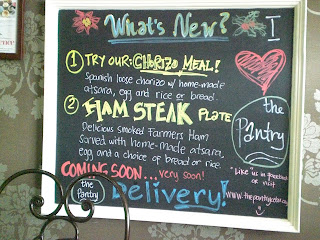 What's New?
I
① TRY OUR: CHORIZO MEAL!
Spanish loose chorizo w/ home-made
atsara, egg and rice or bread.
② HAM STEAK PLATE
Delicious smoked Farmers Ham
Served with home-made atsara,
egg and a choice of bread or rice.
COMING SOON... very soon!
Delivery!
the Pantry
the Pantry
* Like us in facebook
or visit